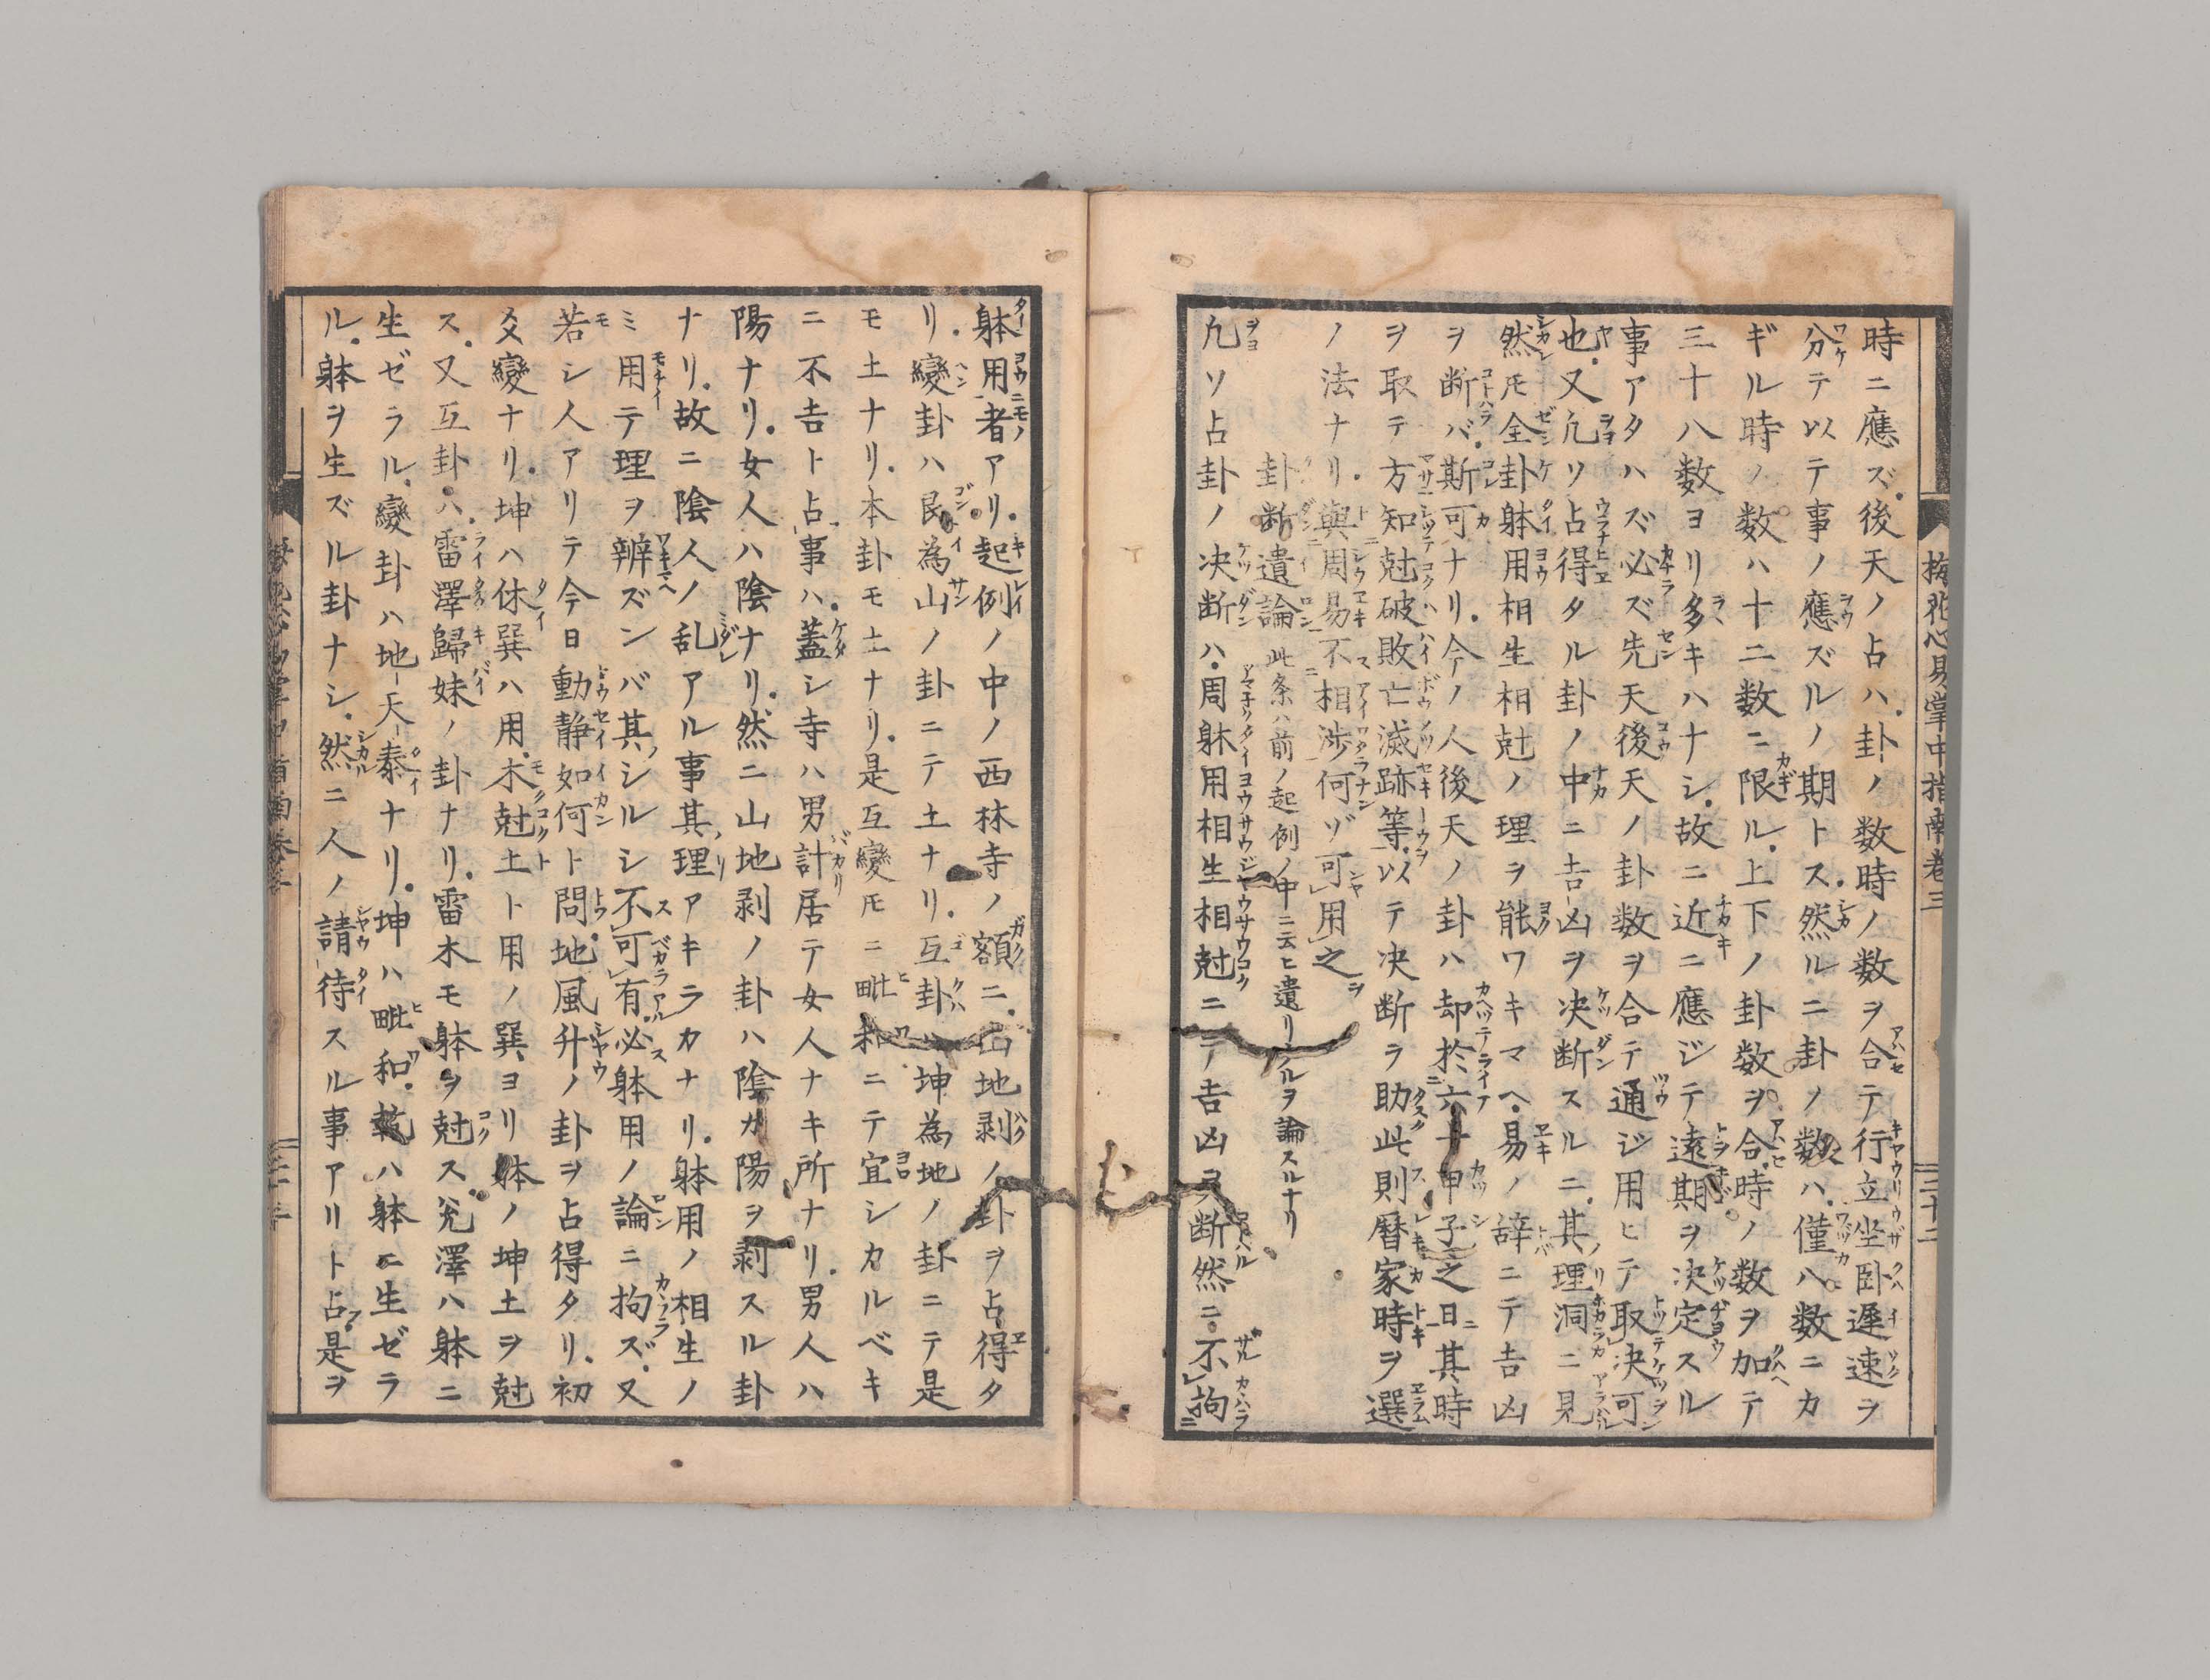 梅花心易掌中指南卷三
三十二
時ニ應ズ後天ノ占ハ卦ノ数時ノ数ヲ合テ行立坐卧遅速ヲ
分テ以テ事ノ應ズルノ期トス然ルニ卦ノ数ハ僅八数ニカ
ギル時ノ数ハ十二数ニ限ル上下ノ卦数ヲ合時ノ数ヲ加テ
三十八数ヨリ多キハナシ故ニ近ニ應ジテ遠期ヲ决定スル
事アタハズ必ズ先天後天ノ卦数ヲ合テ通ジ用ヒテ取决可
也又凢ソ占得タル卦ノ中ニ吉凶ヲ决断スルニ其理洞ニ見
然㇑モ全卦躰用相生相尅ノ理ヲ能ワキマヘ易ノ辞ニテ吉凶
ヲ断バ斯可ナリ今ノ人後天ノ卦ハ却於六十甲子之日其時
ヲ取テ方知尅破敗亡滅跡等以テ决断ヲ助此則暦家時ヲ選
ノ法ナリ與周易不相渉何ゾ可用之
卦断遺論 此条ハ前ノ起例ノ中ニ云ヒ遺リタルヲ論スルナリ
凢ソ占卦ノ决断ハ周躰用相生相尅ニテ吉凶ヲ断然ニ不拘
躰用者アリ起例ノ中ノ西林寺ノ額ニ山地剥ノ卦ヲ占得タ
リ變卦ハ艮為山ノ卦ニテ土ナリ互卦ハ坤為地ノ卦ニテ是
モ土ナリ本卦モ土ナリ是互變㇑モニ毗和ニテ宜シカルベキ
ニ不吉ト占事ハ蓋シ寺ハ男計居テ女人ナキ所ナリ男人ハ
陽ナリ女人ハ陰ナリ然ニ山地剥ノ卦ハ陰カ陽ヲ剥スル卦
ナリ故ニ陰人ノ乱アル事其理アキラカナリ躰用ノ相生ノ
ミ用テ理ヲ辨ズンバ其シルシ不可有必躰用ノ論ニ拘ズ又
若シ人アリテ今日動静如何ト問地風升ノ卦ヲ占得タリ初
爻變ナリ坤ハ体巽ハ用木尅土ト用ノ巽ヨリ躰ノ坤土ヲ尅
ス又互卦ハ雷澤歸妹ノ卦ナリ雷木モ躰ヲ尅ス兌澤ハ躰ニ
生ゼラル變卦ハ地天泰ナリ坤ハ毗和乾ハ躰ニ生ゼラ
ル躰ヲ生ズル卦ナシ然ニ人ノ請待スル事アリト占是ヲ